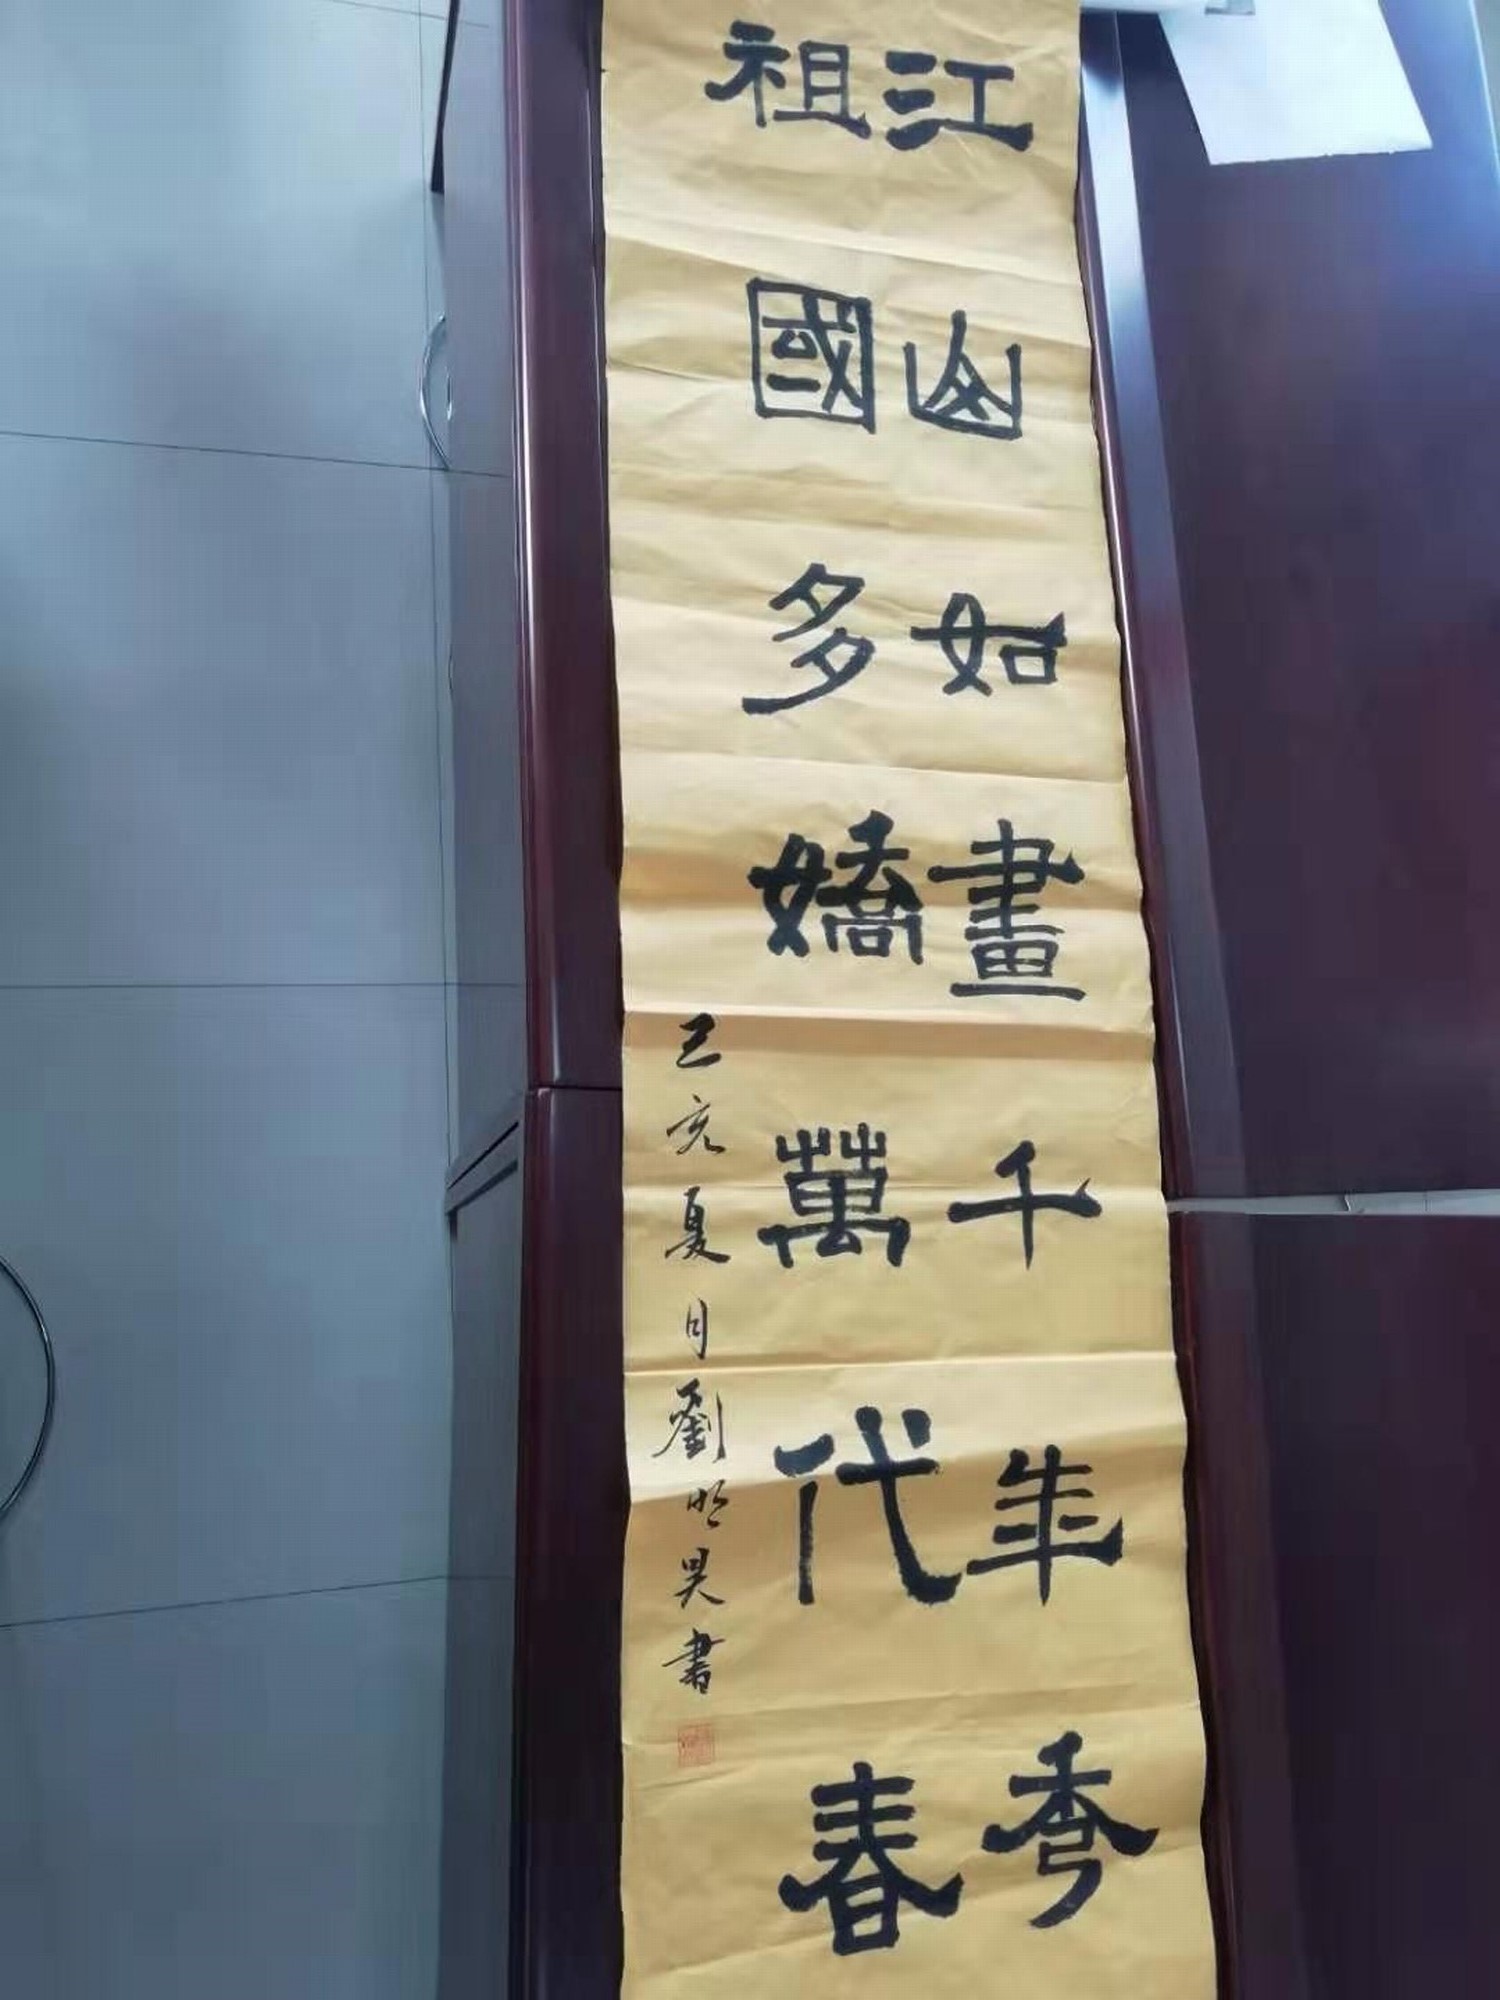 江山如畫千年秀
祖國多嬌萬代春
己亥夏月劉明昊書